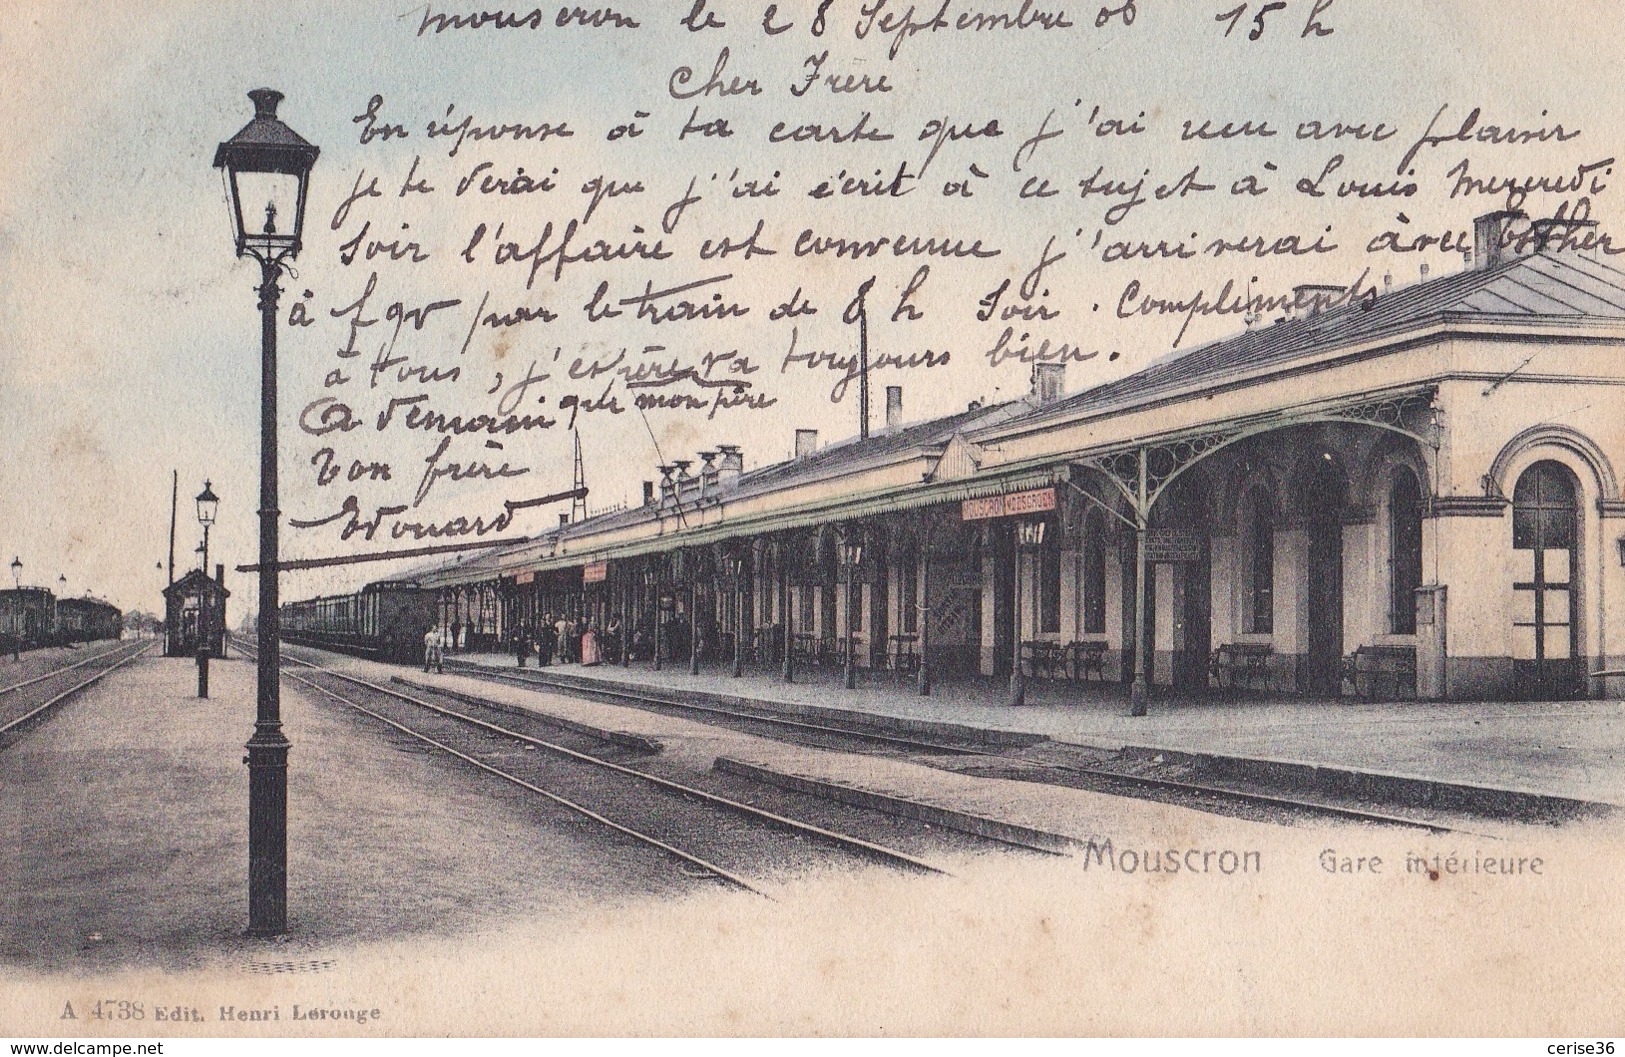 Mouscron le 28 Septembre 06 15 h
Cher Frère
En réponse à ta carte que j'ai reçu avec plaisir
je te dirai que j'ai écrit à ce sujet à Louis Mercredi
Soir l'affaire est convenue j'arriverai avec Esther
à par le train de 8 h Soir. Compliments
à tous, j'espère va toujours bien.
que mon père
A demain
Ton frère
Edouard
MOUSCRON MOESCROEN
Mouscron Gare intérieure
A 4738 Edit. Henri Lerouge
www.delcampe.net
cerise36